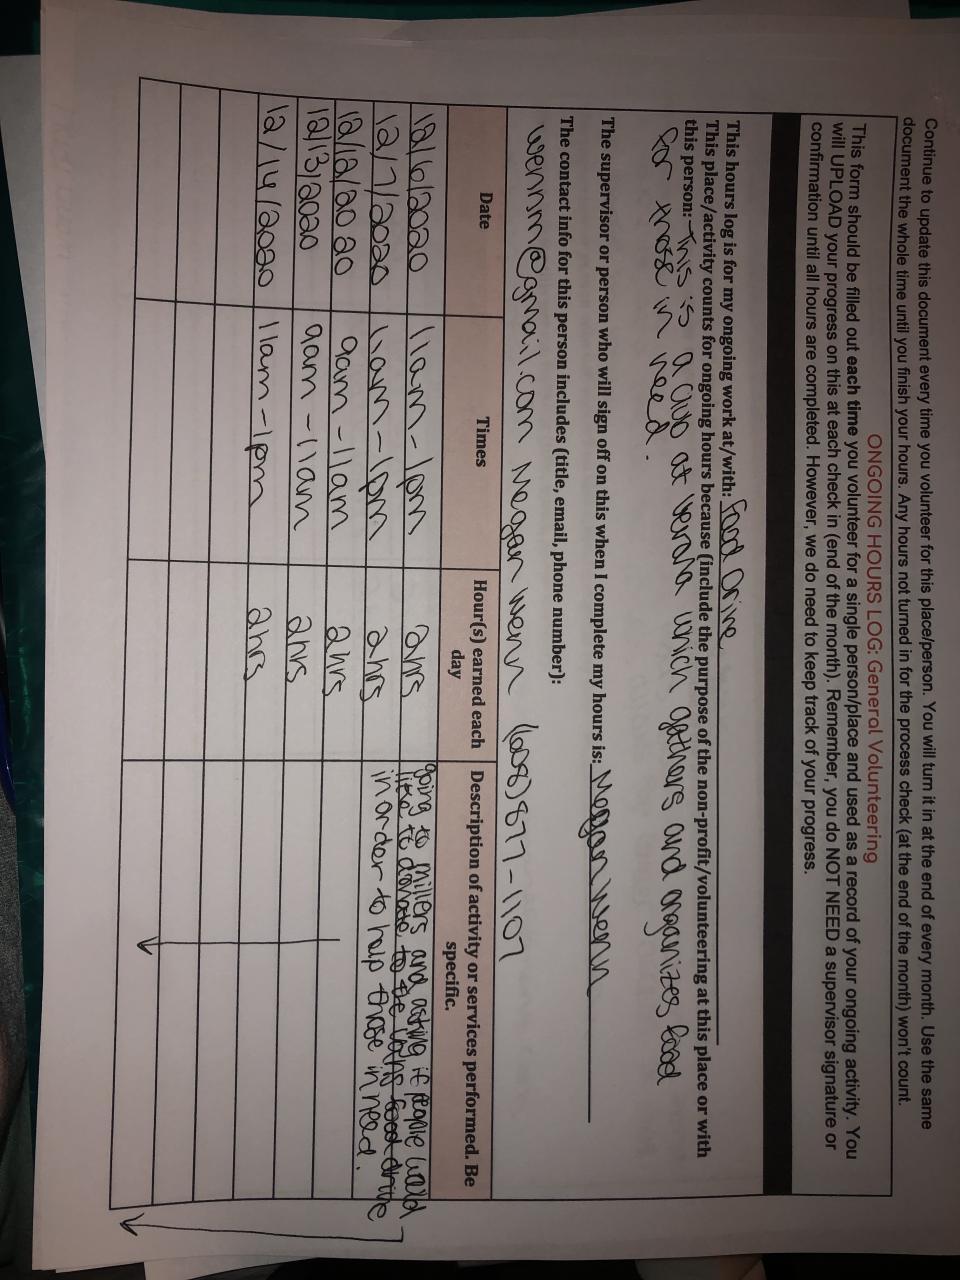 Continue to update this document every time you volunteer for this place/person. You will turn it in at the end of every month. Use the same
document the whole time until you finish your hours. Any hours not turned in for the process check (at the end of the month) won't count.
ONGOING HOURS LOG: General Volunteering
This form should be filled out each time you volunteer for a single person/place and used as a record of your ongoing activity. You
will UPLOAD your progress on this at each check in (end of the month). Remember, you do NOT NEED a supervisor signature or
confirmation until all hours are completed. However, we do need to keep track of your progress.
This hours log is for my ongoing work at/with: Food Drive
This place/activity counts for ongoing hours because (include the purpose of the non-profit/volunteering at this place or with
this person: This is a club at Verona which gathers and organizes food
for those in need.
The supervisor or person who will sign off on this when I complete my hours is: Megan Wenn
The contact info for this person includes (title, email, phone number):
wennm@gmail.com Megan Wenn (608)877-1107
Date Times Hour(s) earned each day Description of activity or services performed. Be specific.
12/6/2020 11am-1pm 2hrs going to millers and asking if people would
12/7/2020 11am-1pm 2hrs like to donate to the food drive
in order to help those in need.
12/12/2020 9am-11am 2hrs
12/13/2020 9am-11am 2hrs
12/14/2020 11am-1pm 2hrs